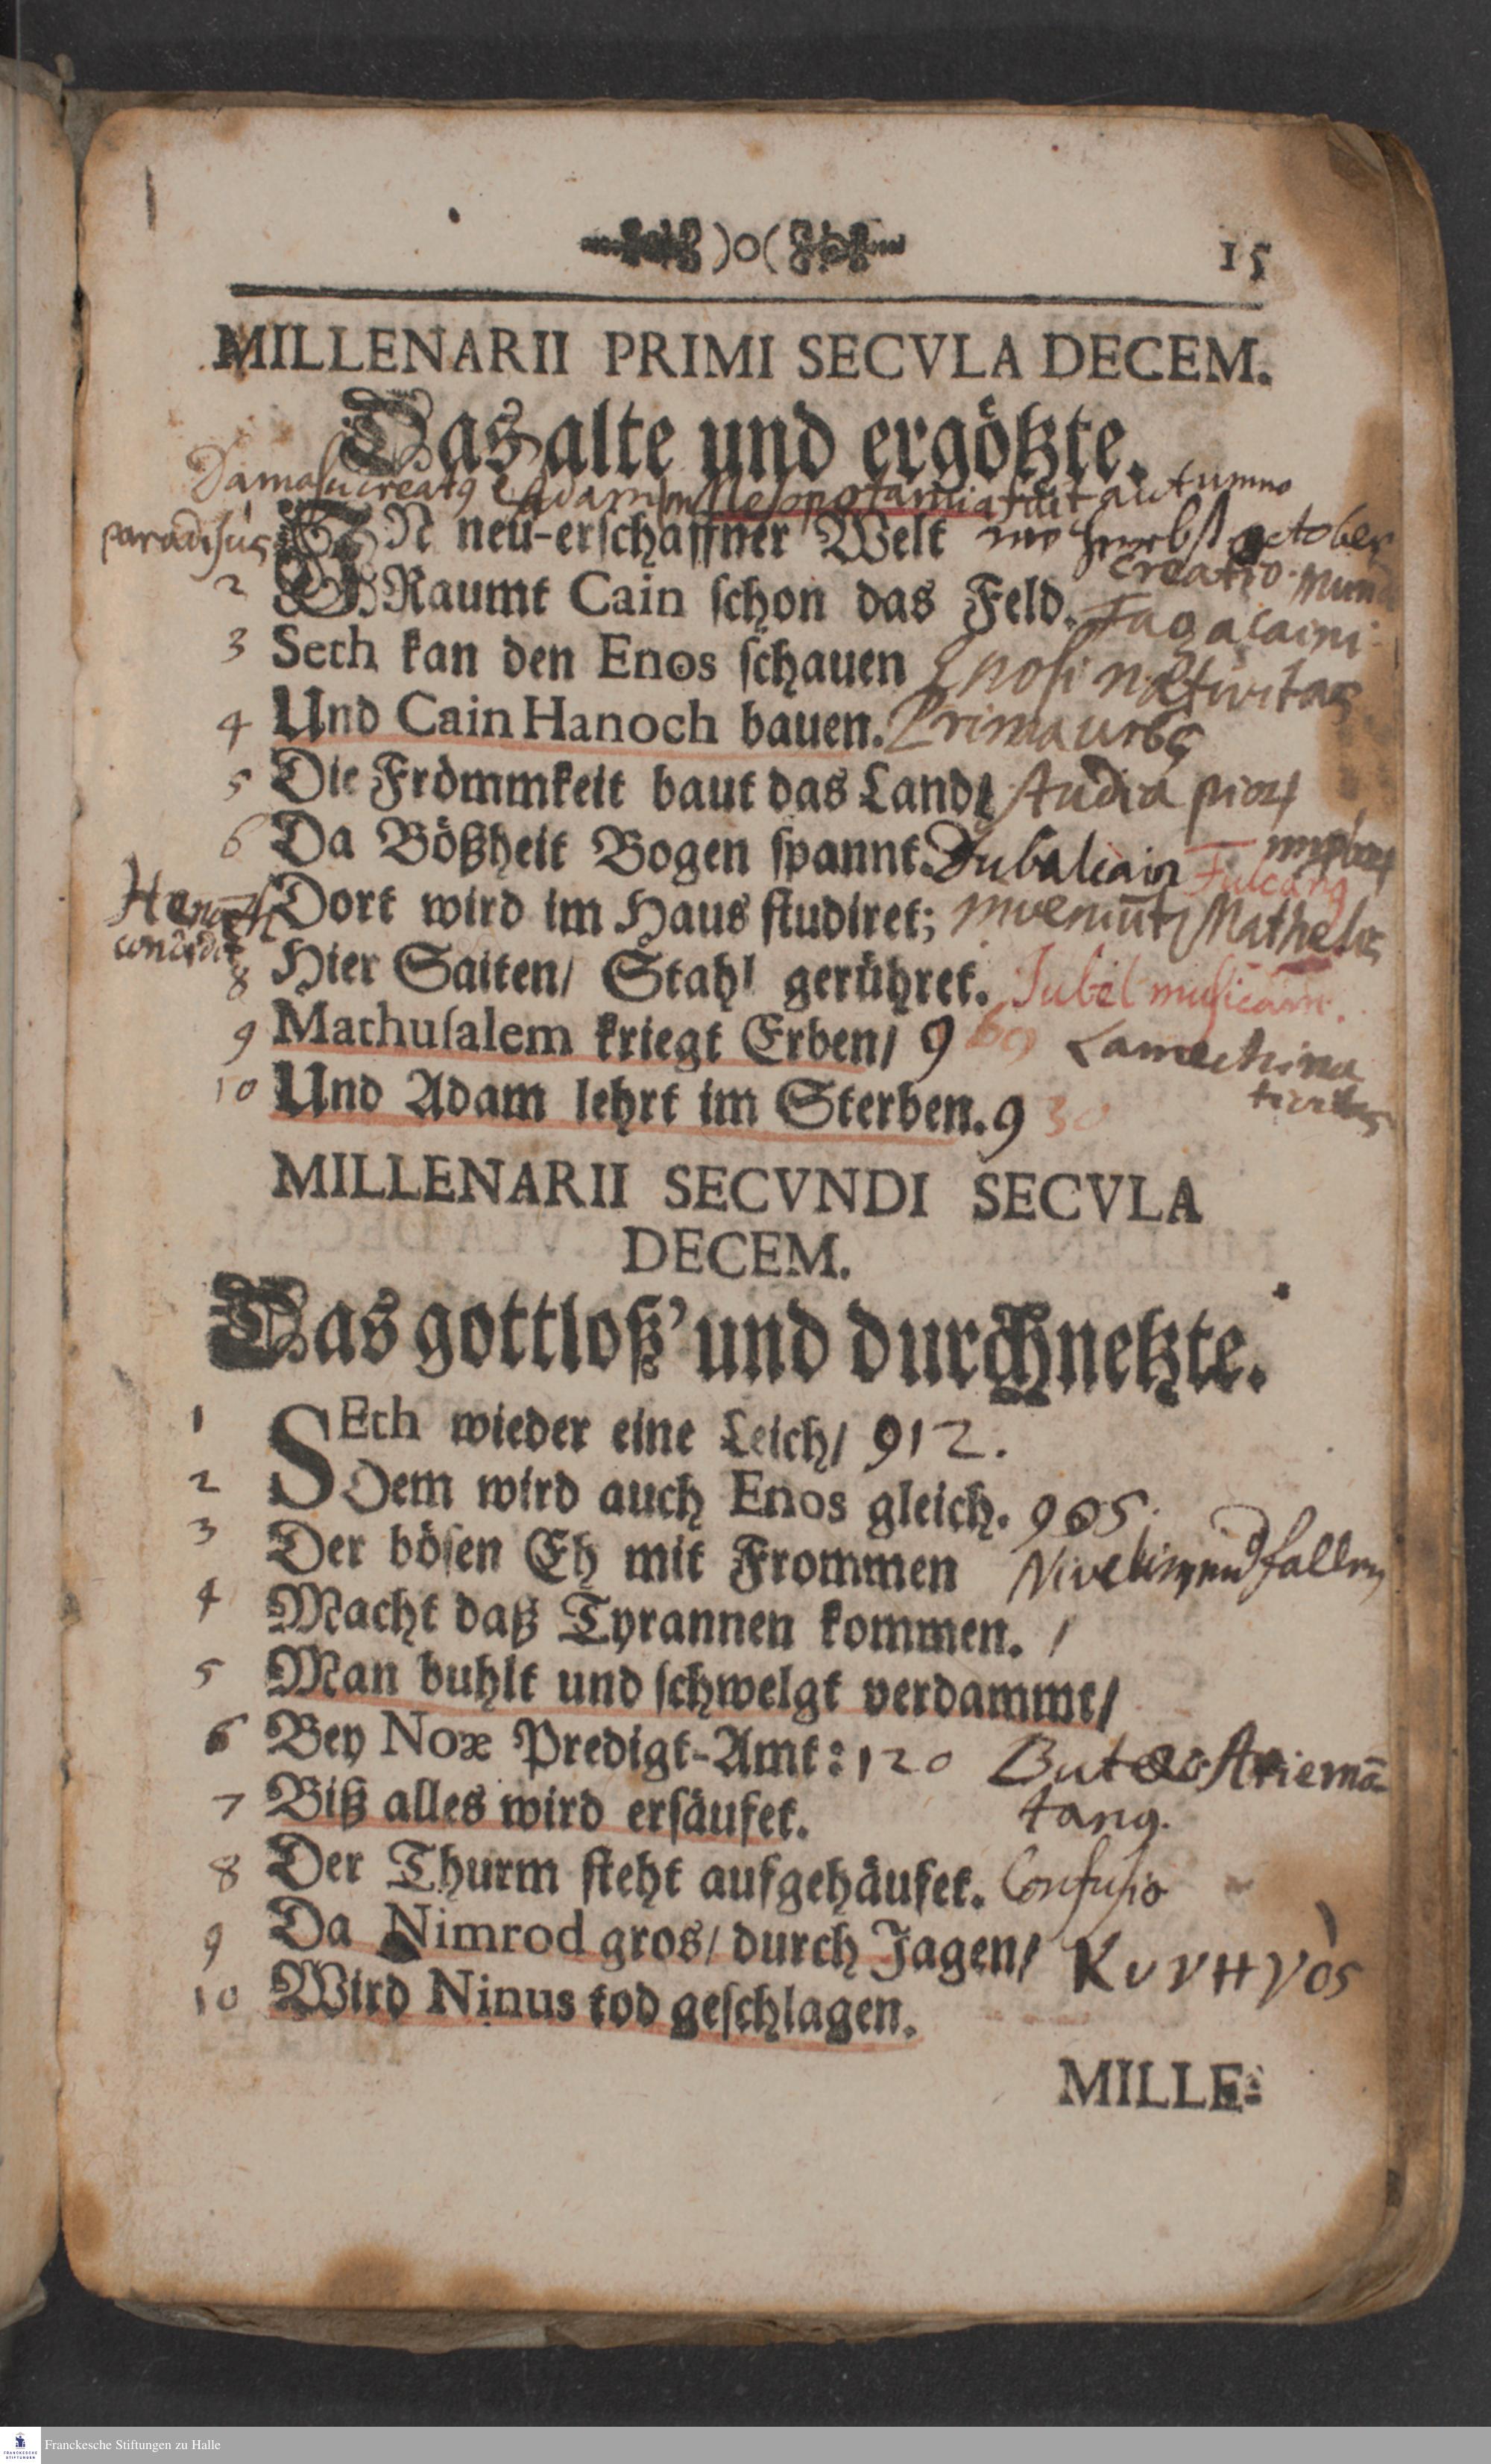 )o( 15
MILLENARII PRIMI SECVLA DECEM.
Das alte und ergötzte.
Damasci creatq e Adam in Mesopotamia fuit autumno
paradisus IN neu-erschaffner Welt october
creatio Mundi
2 RRaumt Cain schon das Feld. Fuga caini
3 Seth kan den Enos schauen Enosi nativitas
4 Und Cain Hanoch bauen. Prima urbs
5 Die Frömmkeit baut das Land/ studia pior
6 Da Bößheit Bogen spannt. Dubalcain
Hanoch Dort wird im Haus studiret; inveniunt Mathesin
condidit
8 Hier Saiten/ Stahl gerühret. Jubal musicam.
9 Mathusalem kriegt Erben/ 969 Lamechi na
tivitas
10 Und Adam lehrt im Sterben. 930
MILLENARII SECVNDI SECVLA
DECEM.
Das gottloß' und durchnetzte.
1 SEth wieder eine Leich/ 912.
2 Dem wird auch Enos gleich. 905.
3 Der bösen Eh mit Frommen
4 Macht daß Tyrannen kommen. /
5 Man buhlt und schwelgt verdammt/
6 Bey Noæ Predigt-Amt: 120
7 Biß alles wird ersäufet.
8 Der Thurm steht aufgehäufet. Confusio
9 Da Nimrod gros/ durch Jagen/ Κυνηγὸς
10 Wird Ninus tod geschlagen.
MILLE-
FRANCKESCHE STIFTUNGEN
Franckesche Stiftungen zu Halle